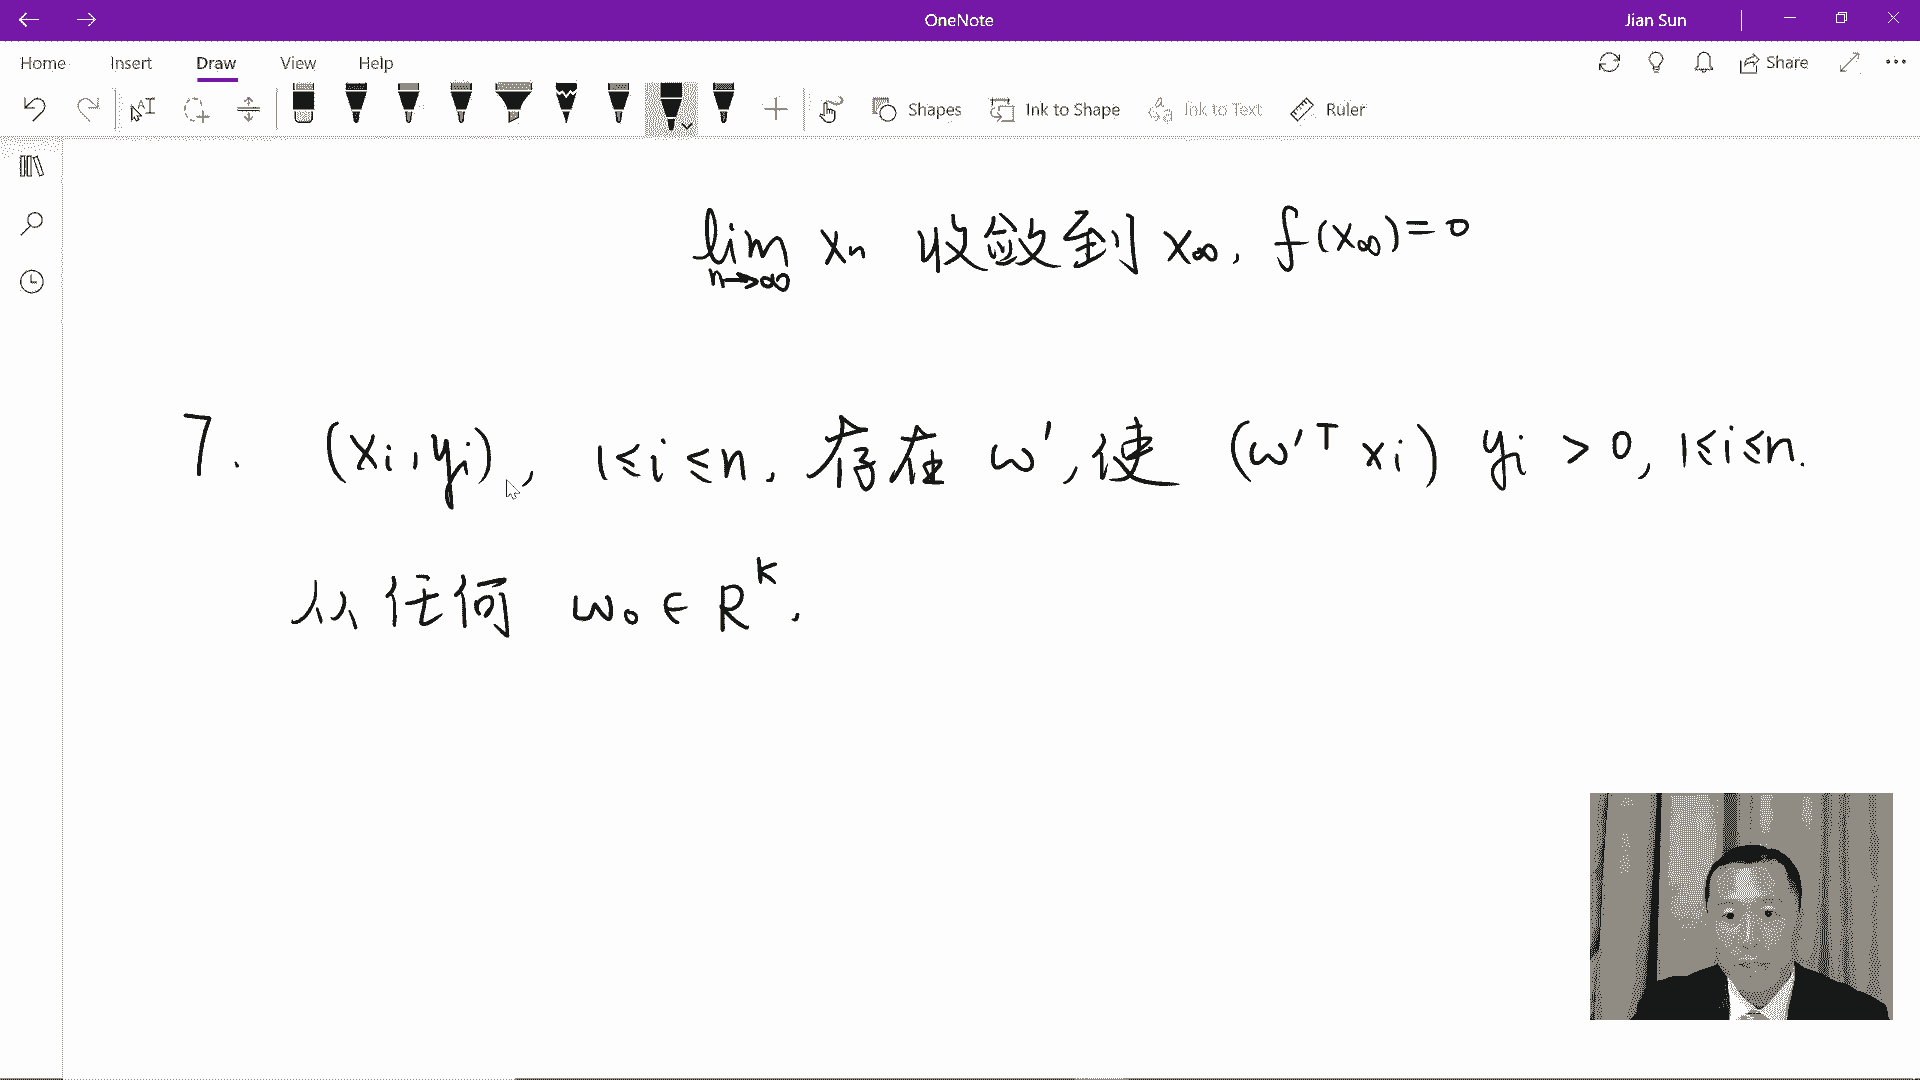 OneNote
Jian Sun
Home Insert Draw View Help
Share
Shapes Ink to Shape Ink to Text Ruler
lim n→∞ xn 收敛到 x∞, f(x∞)=0
7. (xi, yi), 1≤i≤n, 存在 ω', 使 (ω'ᵀ xi) yi > 0, 1≤i≤n.
从任何 ω₀ ∈ Rᴷ,